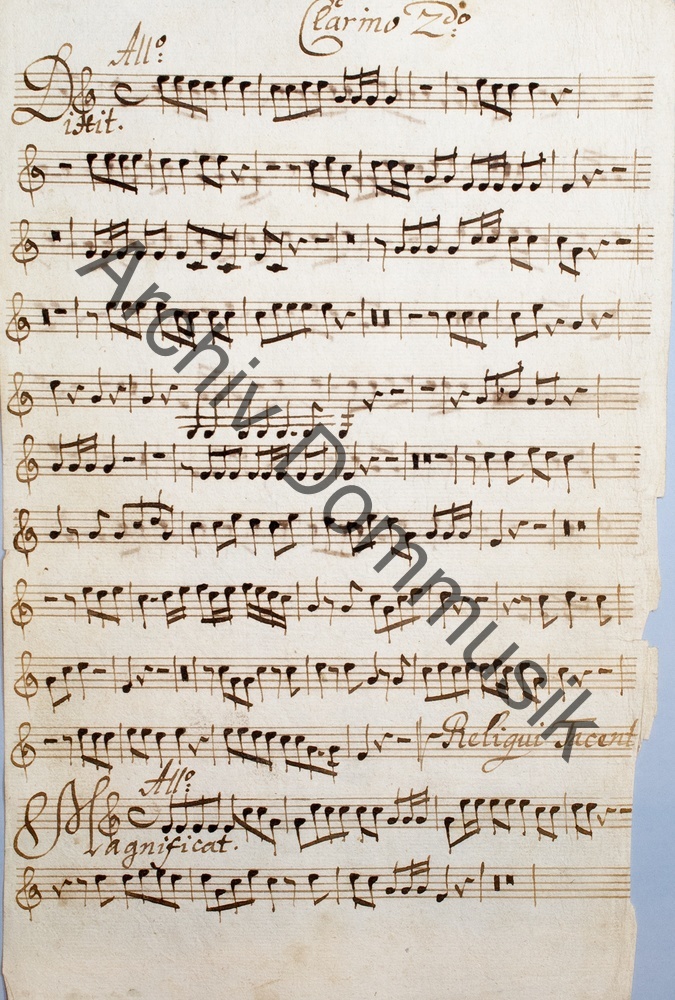 Clarino 2do:
Allo:
Dixit.
Religui Tacent
Allo:
Magnificat.
Archiv Dommusik